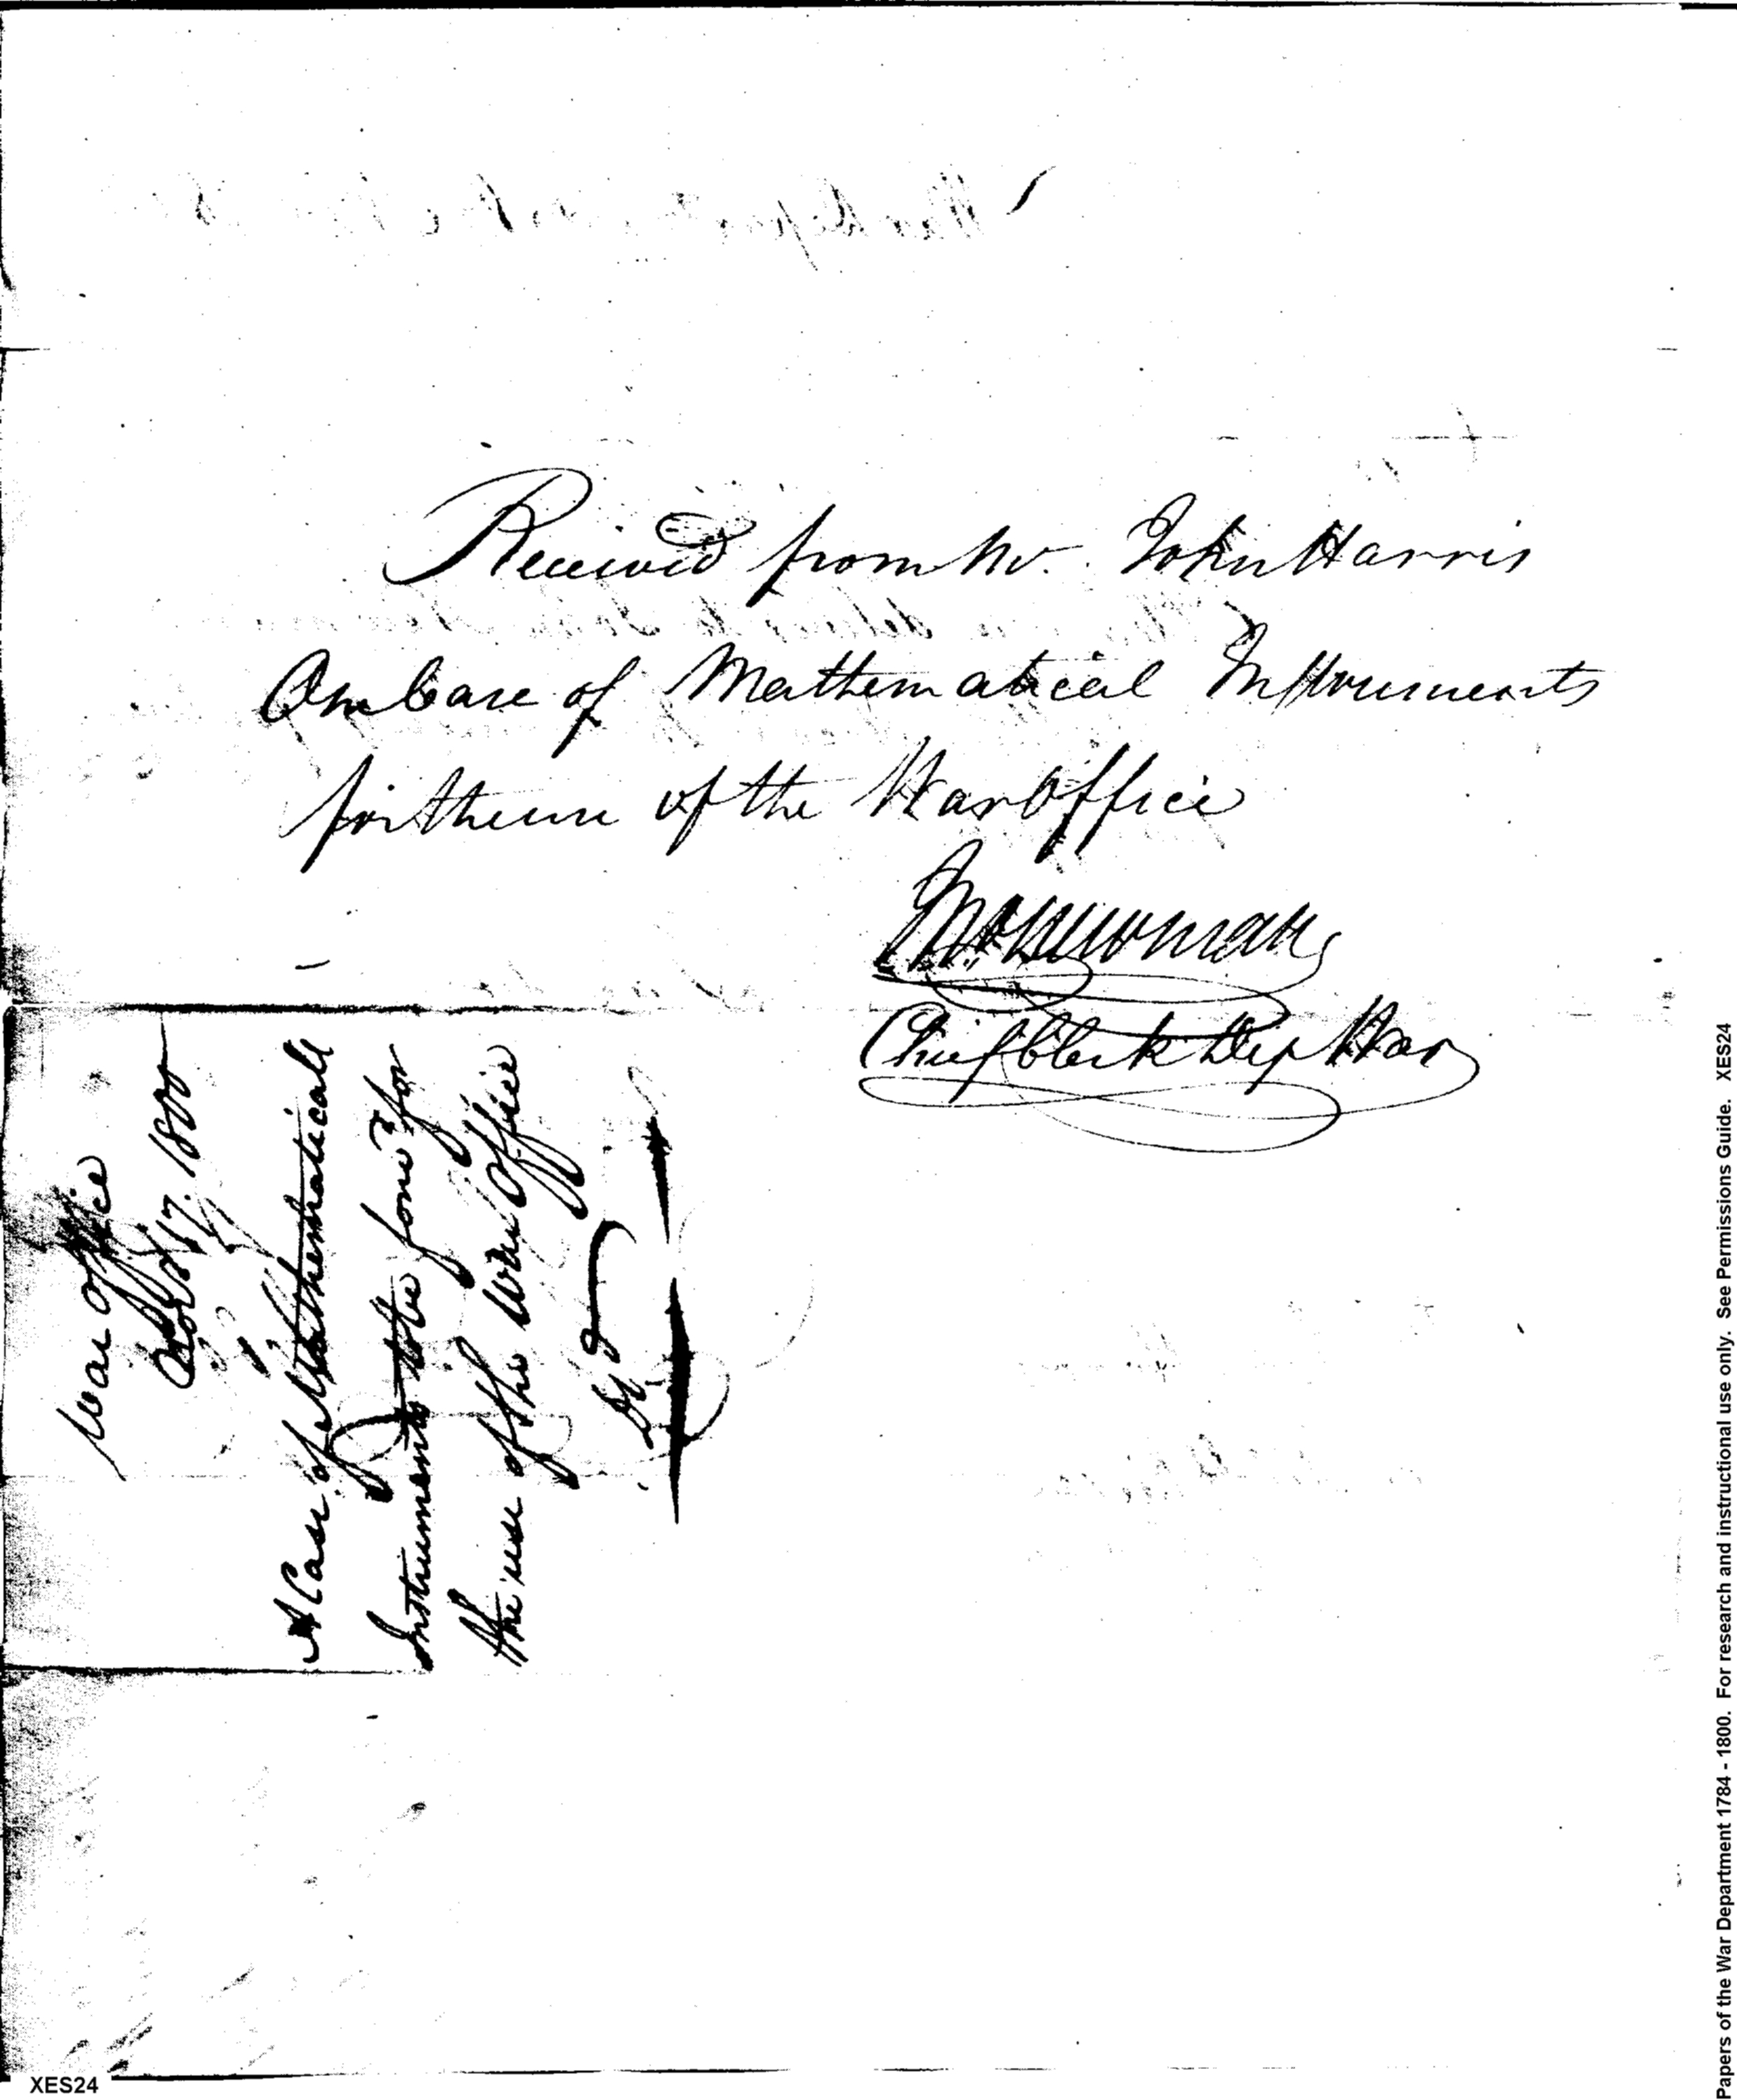 Received from Mr. John Harris
One Case of Mathematical Instruments
for the use of the War Office
Jno Newman
Chief Clerk Dep War
War Office
17. 1800
A Case of Mathematicall
Instruments to be for
the use of the War Office
Papers of the War Department 1784 - 1800. For research and instructional use only. See Permissions Guide. XES24
XES24